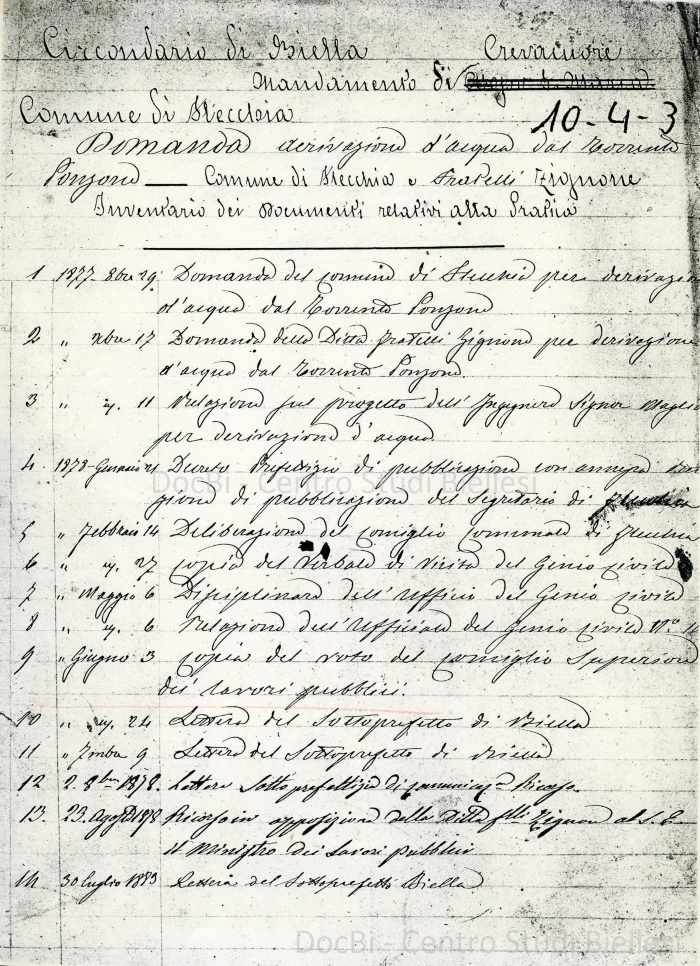 Circondario di Biella Crevacuore
Mandamento di
Comune di Flecchia 10-4-3
Domanda derivazione d'acqua dal Torrente
Ponzone — Comune di Flecchia e Fratelli Zignone
Inventario dei Documenti relativi alla Pratica
1 1877 8bre 29 Domanda del comune di Flecchia per derivazione
d'acqua dal Torrente Ponzone
2 " xbre 17 Domanda della Ditta fratelli Zignone per derivazione
d'acqua dal Torrente Ponzone.
3 " id. 11 Relazione sul progetto dell'Ingegnere Signor
per derivazione d'acqua
4. 1878 Gennaio 21 Decreto Prefettizio di pubblicazione con annessa
zione di pubblicazione del Segretario di Flecchia
5 " Febbraio 14 Deliberazione del consiglio comunale di Flecchia
6 " id. 27 copia del Verbale di Visita del Genio civile
7 " Maggio 6 Disciplinare dell'Ufficio del Genio civile
8 " id. 6 Relazione dell'Ufficiale del Genio civile N°
9 " Giugno 3 copia del voto del consiglio Superiore
dei lavori pubblici.
10 " id. 24 Lettera del Sottoprefetto di Biella
11 " 7mbre 9 Lettera del Sottoprefetto di Biella
12 2. 8bre 1878. Lettera Sotto prefettizia di comunicaz.e Ricorso.
13. 23. Agosto 1878 Ricorso in opposizione della ditta flli Zignone al S. E.
il Ministro dei Lavori Pubblici
14 30 luglio 1883 Lettera del Sottoprefetto Biella
DocBi - Centro Studi Biellesi
DocBi - Centro Studi Biellesi